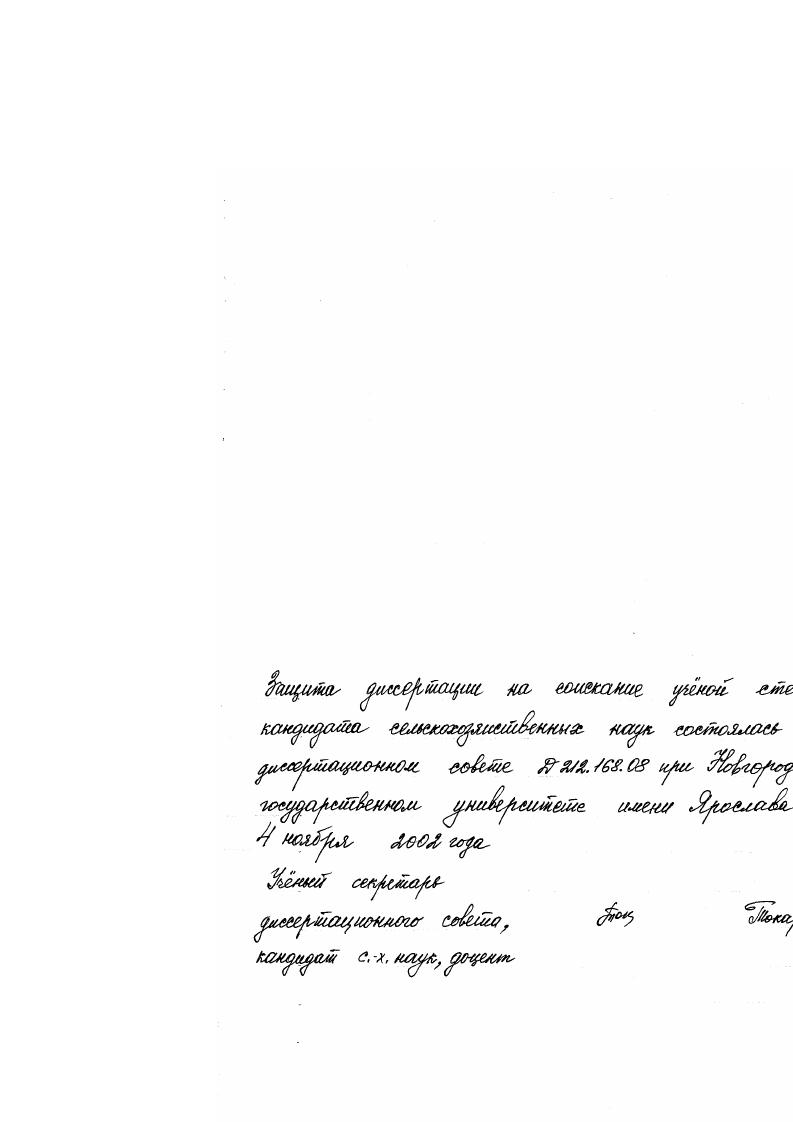 Защита диссертации на соискание учёной сте
кандидата сельскохозяйственных наук состоялась
диссертационном совете Д 212.168.08 при Новгород
государственном университете имени Ярослава
4 ноября 2002 года
Учёный секретарь
диссертационного совета, Ток Тока
кандидат с.-х. наук, доцент